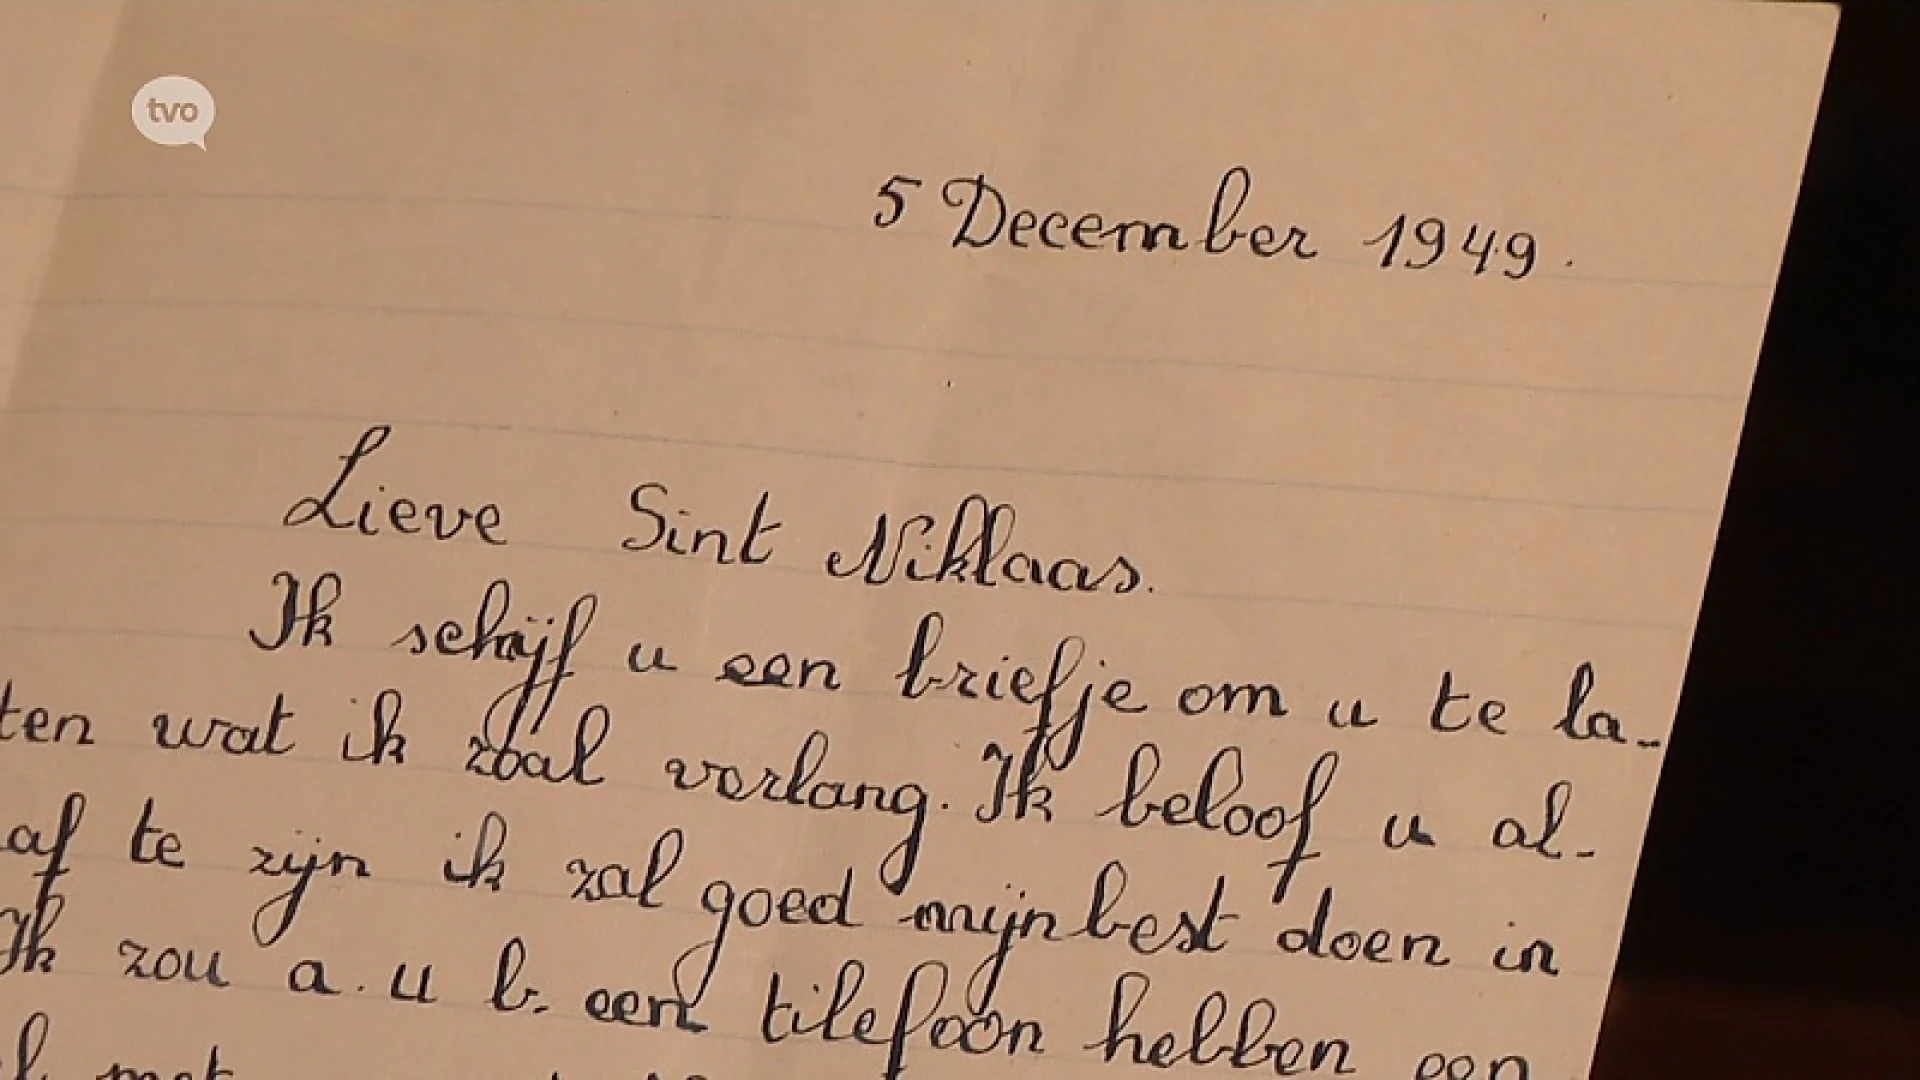 tvo
5 December 1949.
Lieve Sint Niklaas.
Ik schrijf u een briefje om u te la-
ten wat ik zoal verlang. Ik beloof u al-
af te zijn ik zal goed mijn best doen in
Ik zou a.u b. een tilefoon hebben een
met